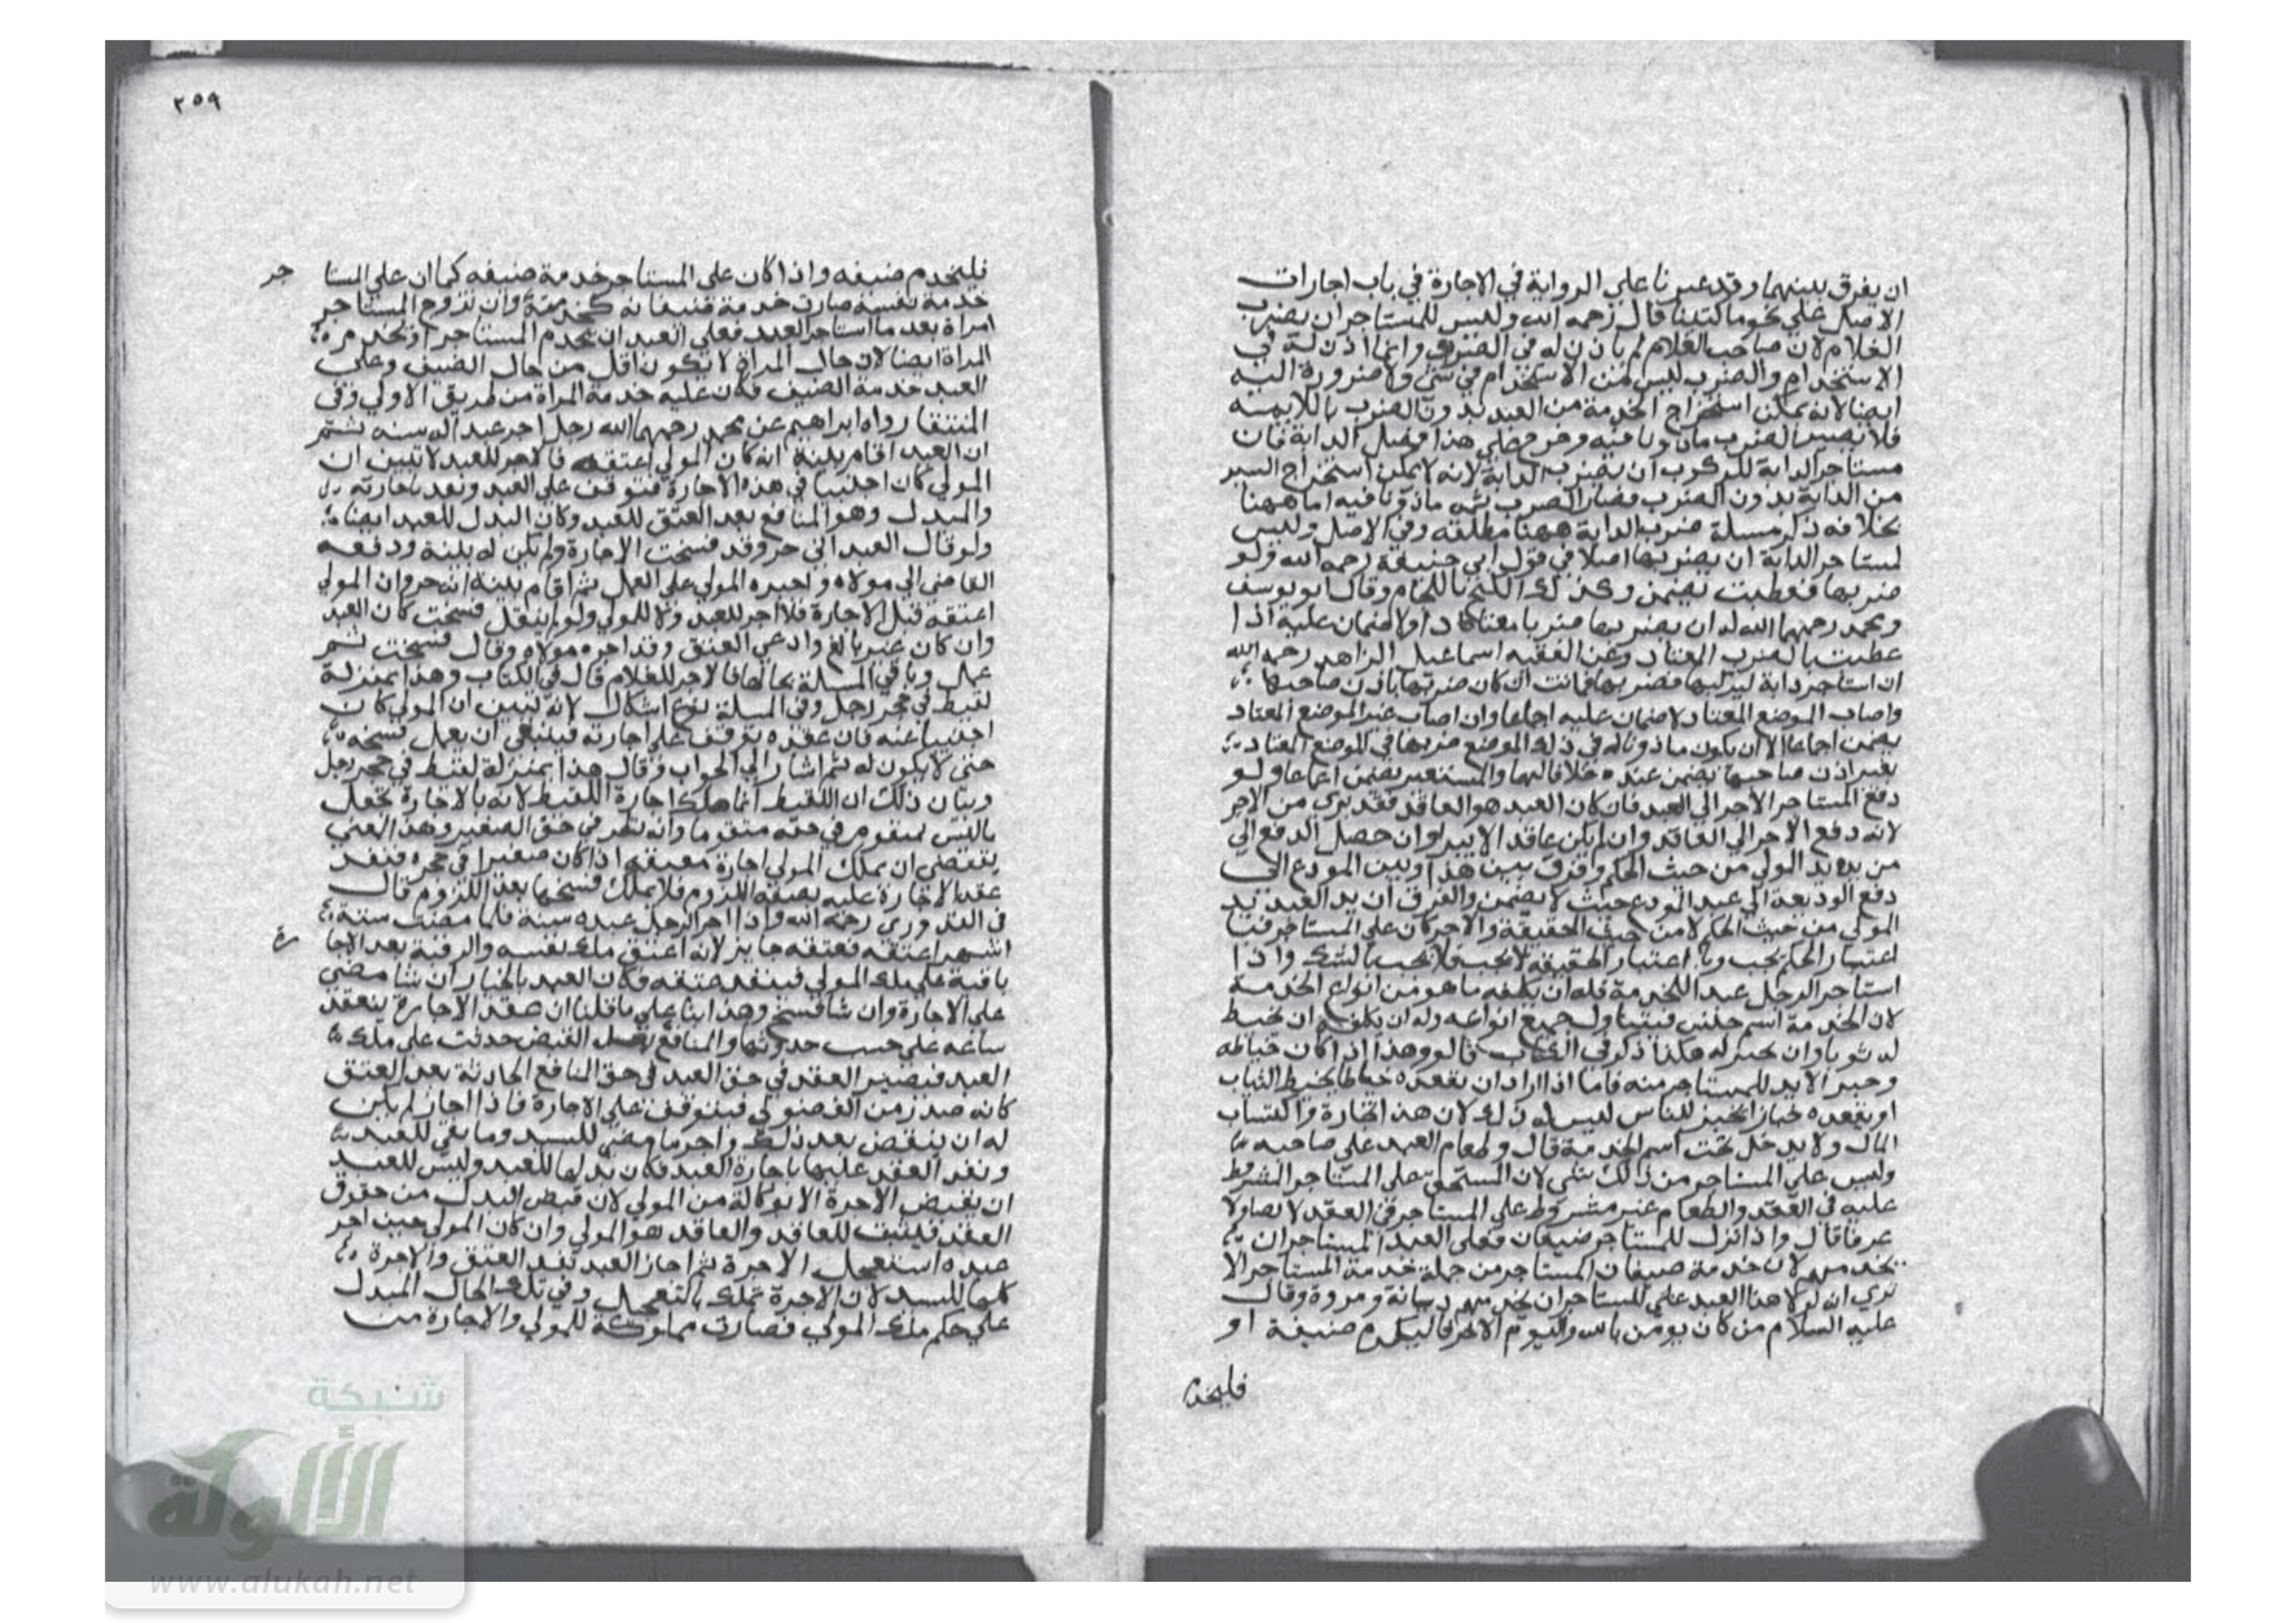 ان يفرق بينهما وقد عبرنا على الرواية في الاجارة في باب اجارات
الاصل علي نحو ما كتبنا قال رحمه الله وليس للمستاجر ان يضرب
الغلام لان صاحب الغلام لم ياذن له في الضرب وانما اذن له في
الاستخدام والضرب ليس من الاستخدام في شي ولا ضرورة اليه
ايضا لانه يمكن استخراج الخدمة من العبد بدون الضرب باللايمه
فلا يصير الضرب ماذونا فيه وفرق علي هذا وفصل الدابة فان
مستاجر الدابة للركوب ان يضرب الدابة لانه لا يمكن استخراج السير
من الدابة بدون الضرب فصار الضرب ثمه ماذونا فيه اما ههنا
بخلافه ذكر مسلة ضرب الدابة ههنا مطلقه وفي الاصل وليس
لمستاجر الدابة ان يضربها اصلا في قول ابي حنيفة رحمه الله ولو
ضربها فعطبت يضمن وكذلك الكبح باللجام وقال ابو يوسف
ومحمد رحمهما الله له ان يضربها ضربا معتادا ولا ضمان عليه اذا
عطبت بالضرب المعتاد وعن الفقيه اسماعيل الزاهد رحمه الله
ان استاجر دابة ليركبها فضربها فماتت ان كان ضربها باذن صاحبها
واصاب الموضع المعتاد لا ضمان عليه اجماعا وان اصاب غير الموضع المعتاد
يضمن اجماعا الا ان يكون ماذونا له في ذلك الموضع ضربها في الموضع المعتاد
بغير اذن صاحبها يضمن عنده خلافا لهما والمستعير يضمن اجماعا ولو
دفع المستاجر الاجر الي العبد فان كان العبد هو العاقد فقد بري من الاجر
لانه دفع الاجر الي العاقد وان لم يكن عاقدا لا يبرا وان حصل الدفع الي
من يده يد المولي من حيث الحكم وفرق بين هذا وبين المودع اذا
دفع الوديعة الي عبد المودع حيث لا يضمن والفرق ان يد العبد يد
المولي من حيث الحكم لا من حيث الحقيقة والاجر كان علي المستاجر
اعتبار الحكم يجب اعتبار الحقيقه لا يجب فلا يجب بالشك واذا
استاجر الرجل عبدا للخدمة فله ان يكلفه ما هو من انواع الخدمة
لان الخدمة اسم جنس فيتناول جميع انواعه وله ان يكلفه ان يخيط
له ثوبا وان يخبز له هكذا ذكر في الكتاب قالوا وهذا اذا كان خياطه
وخبز الا بد للمستاجر منه فاما اذا اراد ان يقعده خياطا يخيط الثياب
او يقعده خبازا يخبز للناس ليس له ذلك لان هذا تجارة واكتساب
المال ولا يدخل تحت اسم الخدمة قال وطعام العبد علي صاحبه
وليس علي المستاجر من ذلك شي لان المستحق علي المستاجر المشروط
عليه في العقد والطعام غير مشروط علي المستاجر في العقد لا نصا ولا
عرفا قال واذا نزل للمستاجر ضيفان فعلي العبد المستاجر ان
يخدمهم لان خدمة ضيفان المستاجر من جملة خدمة المستاجر الا
تري انه لولا هذا العبد علي المستاجر ان يخدمهم ديانة ومروة وقال
عليه السلام من كان يومن بالله واليوم الاخر فليكرم ضيفه او
فليخدم
٢٥٩
فليخدم ضيفه واذا كان على المستاجر خدمة ضيفه كما ان علي المستا جر
خدمة نفسه صارت خدمة ضيفانه كخدمته وان تزوج المستاجر
امراة بعد ما استاجر العبد فعلي العبد ان يخدم المستاجر او يخدم
المراة ايضا لان حال المراة لا تكون اقل من حال الضيف وعلى
العبد خدمة الضيف فكان عليه خدمة المراة من طريق الاولي وفي
المنتقا رواه ابراهيم عن محمد رحمهما الله رجل اجر عبدا له سنه ثم
ان العبد اقام بينة انه كان المولي اعتقه فالاجر للعبد لا تبين ان
المولي كان اجنبيا في هذه الاجارة فتوقف علي العبد ونفد باجازته
والمبدل وهو المنافع بعد العتق للعبد وكان البدل للعبد ايضا
ولو قال العبد اني حر وقد فسخت الاجارة ولم يكن له بينة ودفعه
القاضي الي مولاه واجبره المولي علي العمل ثم اقام بينة انه حر وان المولي
اعتقه قبل الاجارة فلا اجر للعبد ولا للمولي ولو لم يقل فسخت كان العبد
وان كان غير بالغ وادعي العتق وقد اجره مولاه وقال فسخت ثم
عمل وباقي المسلة بحالها فالاجر للغلام قال في الكتاب وهذا بمنزلة
لقيط في حجر رجل وفي المسلة نوع اشكال لانه تبين ان المولي كان
اجنبيا عنه فان عقده توقف علي اجازته فينبغي ان يعمل فسخه
حتى لا يكون له ثم اشار الي الجواب وقال هذا بمنزلة لقيط في حجر رجل
وبيان ذلك ان اللقيط انما ملك اجارة اللقيط لانه بالاجارة تجعل
ما ليس بمتقوم في حقه متقوما وانه نظر في حق الصغير وهذا المعني
يقتضي ان يملك المولي اجارة معتقه اذا كان صغيرا في حجره فنفد
عقد الاجارة عليه بصفه اللزوم فلا يملك فسخها بعد اللزوم قال
في القدوري رحمه الله واذا اجر الرجل عبده سنة فلما مضت ستة
اشهر اعتقه فعتقه جايز لانه اعتق ملك نفسه والرقبة بعد الاجا رة
باقية علي ملك المولي فينفد عتقه فكان العبد بالخيار ان شا مضي
على الاجارة وان شا فسخ وهذا بنا علي ما قلنا ان عقد الاجارة ينعقد
ساعه علي حسب حدوثها والمنافع حدثت علي ملك
العبد فيصير العقد في حق العبد في حق المنافع الحادثة بعد العتق
كانه صدر من الفضولي فيتوقف علي الاجارة فاذا اجاز لم يكن
له ان ينقض بعد ذلك واجر ما مضي للسيد وما بقي للعبد
ونفد العقد عليها باجازة العبد فكان بدلها للعبد وليس للعبد
ان يقبض الاجرة الا بوكالة من المولي لان قبض البدل من حقوق
العقد فيثبت للعاقد والعاقد هو المولي وان كان المولي حين اجر
عبده استعجل الاجرة ثم اجاز العبد بعد العتق والاجرة
كلها للسيد لان الاجرة تملك بالتعجيل وفي تلك الحال المبدل
علي حكم ملك المولي فصارت مملوكة للمولي والاجارة مت
شبكة
الألوكة
www.alukah.net